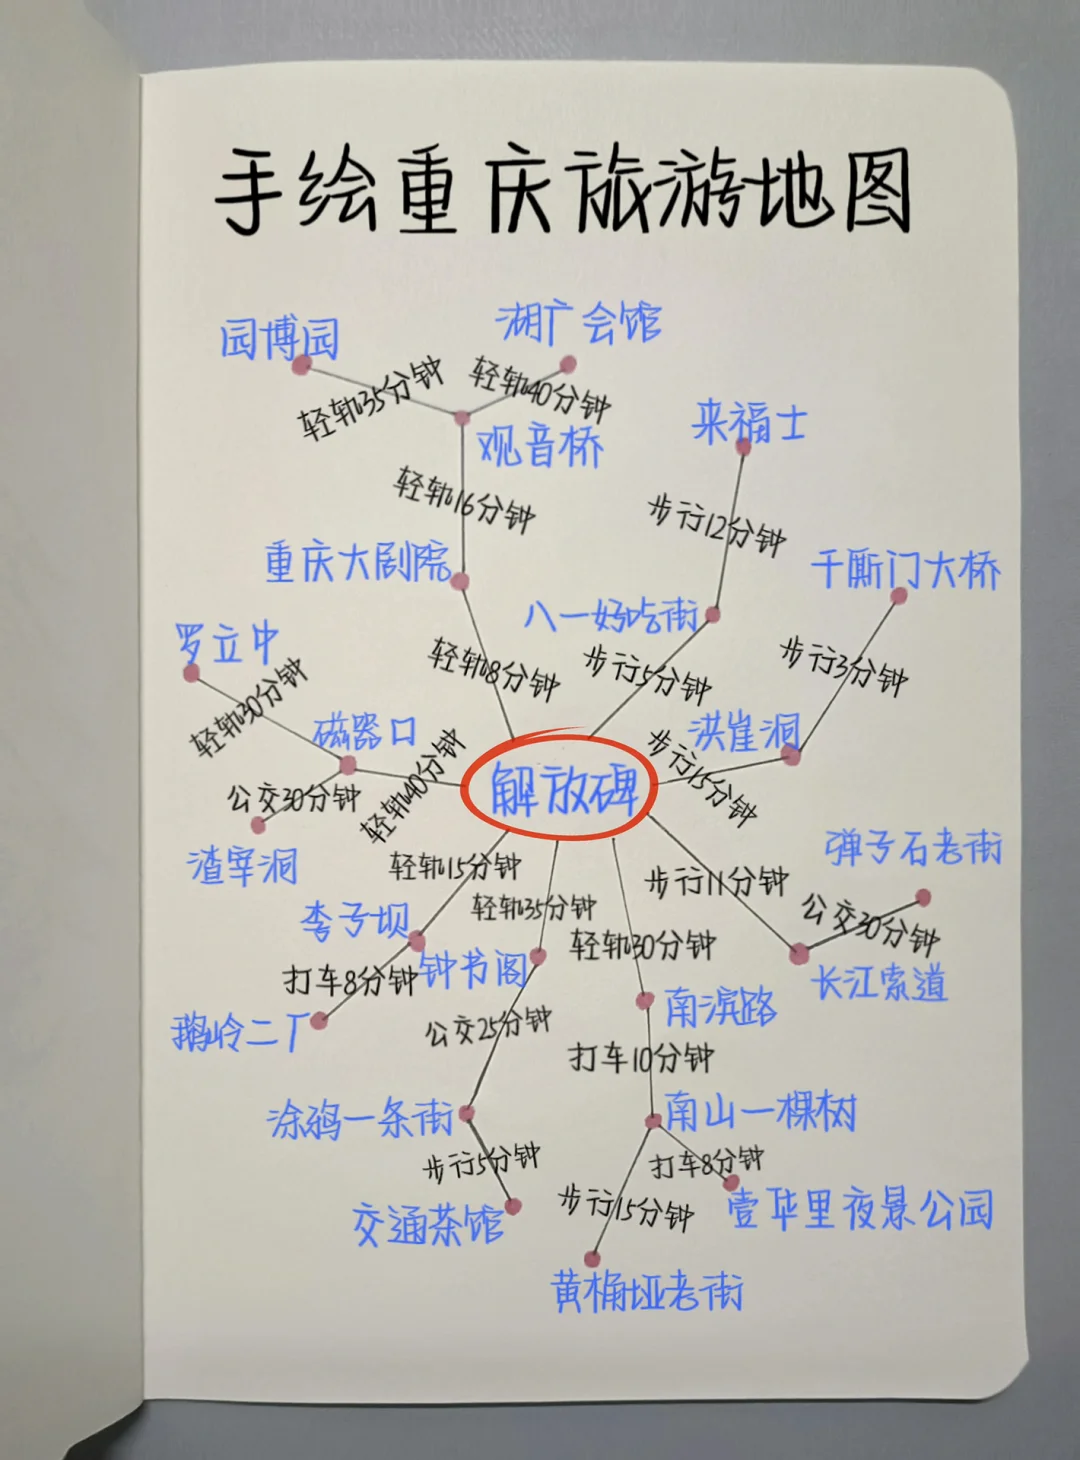 手绘重庆旅游地图
园博园
湖广会馆
轻轨35分钟
轻轨40分钟
来福士
观音桥
轻轨16分钟
步行12分钟
重庆大剧院
千厮门大桥
八一好吃街
罗立中
轻轨8分钟
步行5分钟
步行3分钟
轻轨30分钟
磁器口
洪崖洞
轻轨40分钟
步行15分钟
解放碑
公交30分钟
渣宰洞
轻轨15分钟
步行11分钟
弹子石老街
李子坝
轻轨35分钟
公交30分钟
轻轨30分钟
打车8分钟
钟书阁
长江索道
鹅岭二厂
公交25分钟
南滨路
打车10分钟
涂鸦一条街
南山一棵树
步行5分钟
打车8分钟
交通茶馆
步行15分钟
壹华里夜景公园
黄桷垭老街